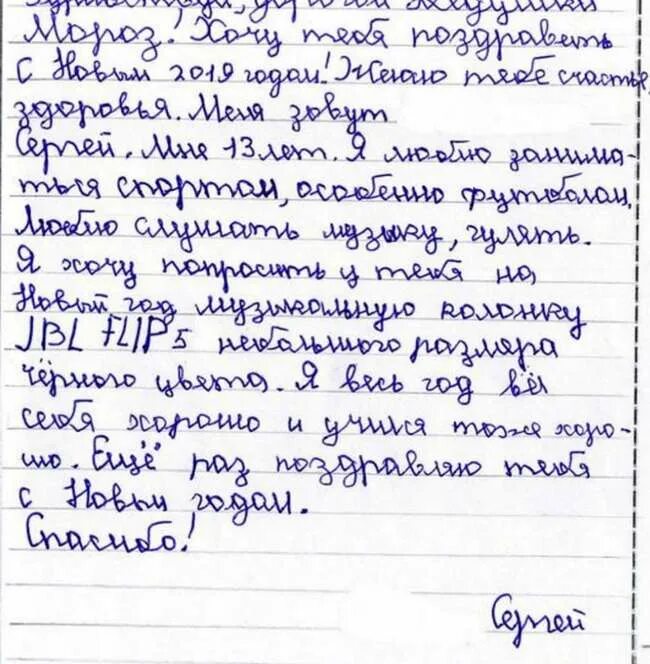 Здравствуй, дорогой Дедушка
Мороз! Хочу тебя поздравить
с Новым 2019 годом! Желаю тебе счастья,
здоровья. Меня зовут
Сергей. Мне 13 лет. Я люблю занима-
ться спортом, особенно футболом,
люблю слушать музыку, гулять.
Я хочу попросить у тебя на
Новый год музыкальную колонку
JBL FLIP 5 небольшого размера
чёрного цвета. Я весь год вёл
себя хорошо и учился тоже хоро-
шо. Ещё раз поздравляю тебя
с Новым годом.
Спасибо!
Сергей